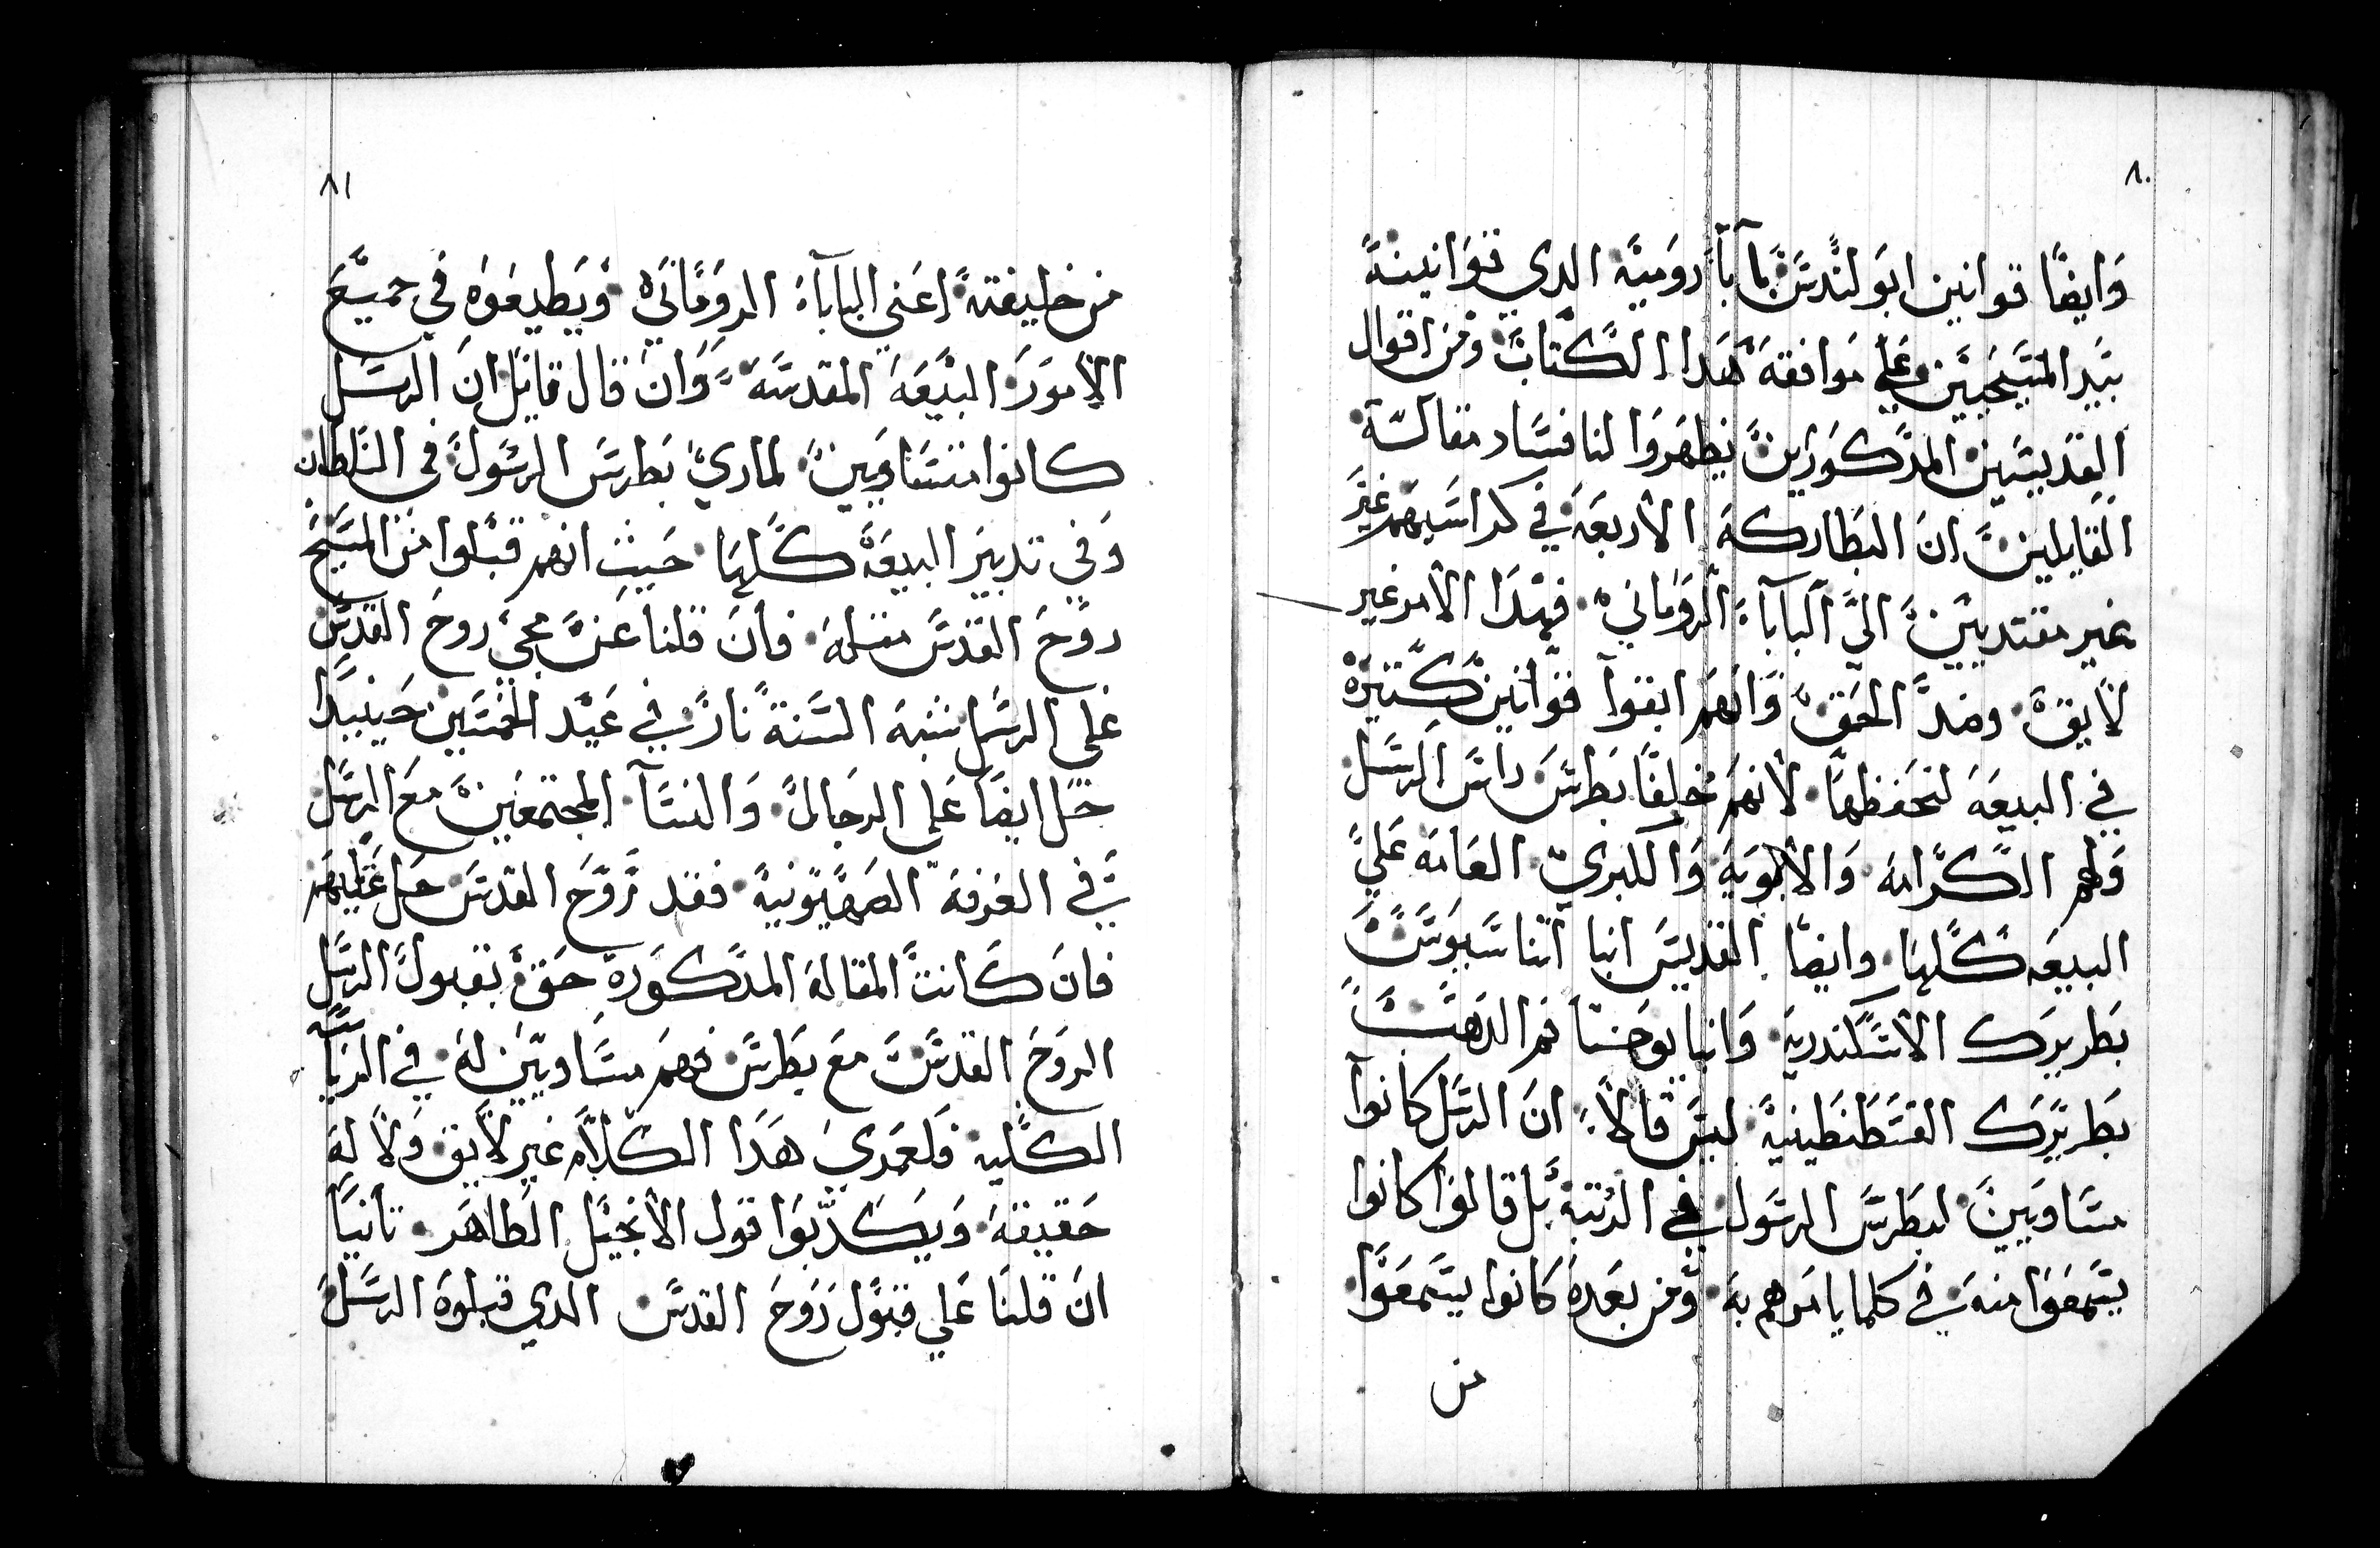 ٨٠
وايضًا قوانين ابولندس بابآ رومية الدي قوانينة
بيد المسيحيين وعلي موافقة هدا الكتاب ومن اقوال
القديسين المدكورين يظهروا لنا فساد مقالة
القايلين ان البطاركة الاربعة في كراسيهم غير
غير مقتديين الي البابآ الروماني فهدا الامر غير
لايق وضد الحق وانهم ابقوا قوانين كتيرة
في البيعة لتحفظها لانهم خلفا بطرس راس الرسل
ولهم الكرامة والابوية والكبري العامة علي
البيعة كلها وايضا القديس انبا اتناسيوس
بطريرك الاسكندرية وانبا يوحنا فم الدهب
بطريرك القسطنطينية ليس قالا ان الرسل كانوا
مساويين لبطرس الرسول في الرتبة بل قالوا كانوا
يسمعوا منه في كلما يامرهم به ومن بعده كانوا يسمعوا
من
٨١
من خليفته اعني البابآ الروماني ويطيعوه في جميع
الامور البيعة المقدسة وان قال قايل ان الرسل
كانوا متساويين لماري بطرس الرسول في السلطان
وفي تدبير البيعة كلها حيث انهم قبلوا من المسيح
روح القدس متله فان قلنا عن مجي روح القدس
علي الرسل شبه السنة نار في عيد الخمسين حينيدا
حل ايضا علي الرجال والنسآ المجتمعين مع الرسل
في الغرفة الصهيونية فقد روح القدس حل عليهم
فان كانت المقالة المدكورة حق بقبول الرسل
الروح القدس مع بطرس فهم مساويين له في الرياسة
الكلية فلعمري هدا الكلام غير لايق ولا له
حقيقة ويكدبوا قول الانجيل الطاهر تانيا
ان قلنا علي قبول روح القدس الدي قبلوه الرسل